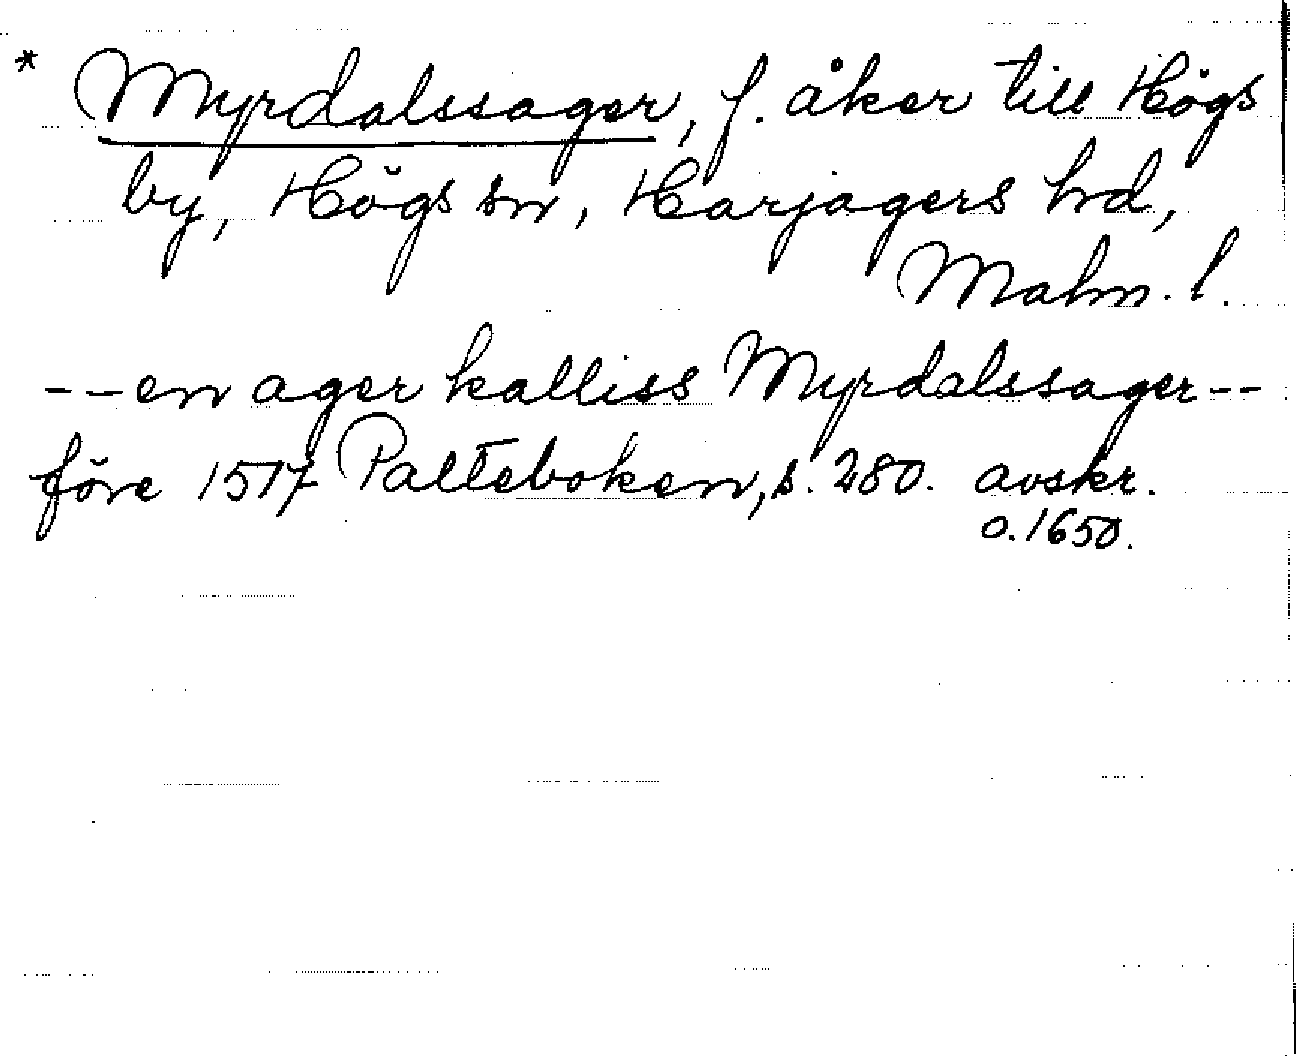 * Myrdalssager, f. åker till Högs
by, Högs sn, Harjagers hd,
Malm. l.
--en ager kalliss Myrdalssager--
före 1517 Palteboken, s. 280. avskr.
o. 1650.